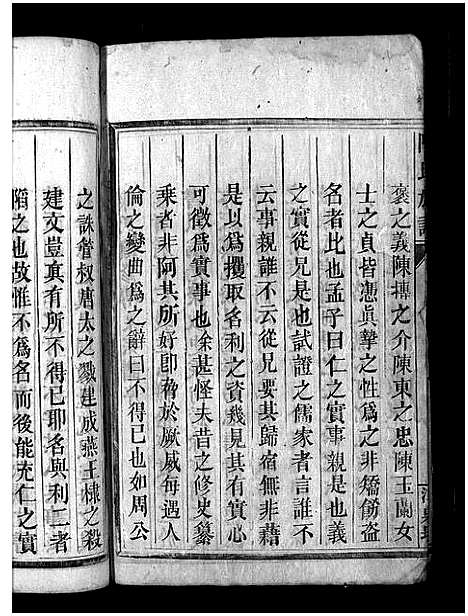 褒之義陳摶之介陳東之忠陳玉蘭女
士之貞皆憑真摯之性爲之非矯飾盜
名者比也孟子曰仁之實事親是也義
之實從兄是也試證之儒家者言誰不
云事親誰不云從兄要其歸宿無非藉
是以爲攫取名利之資幾見其有實心
可徵爲實事也余甚怪夫昔之修史纂
乘者非阿其所好即脅於厥威每遇人
倫之變曲爲之辭曰不得已也如周公
之誅管叔唐太之戮建成燕王棣之殺
建文豈真有所不得已耶名與利二者
陷之也故惟不爲名而後能充仁之實